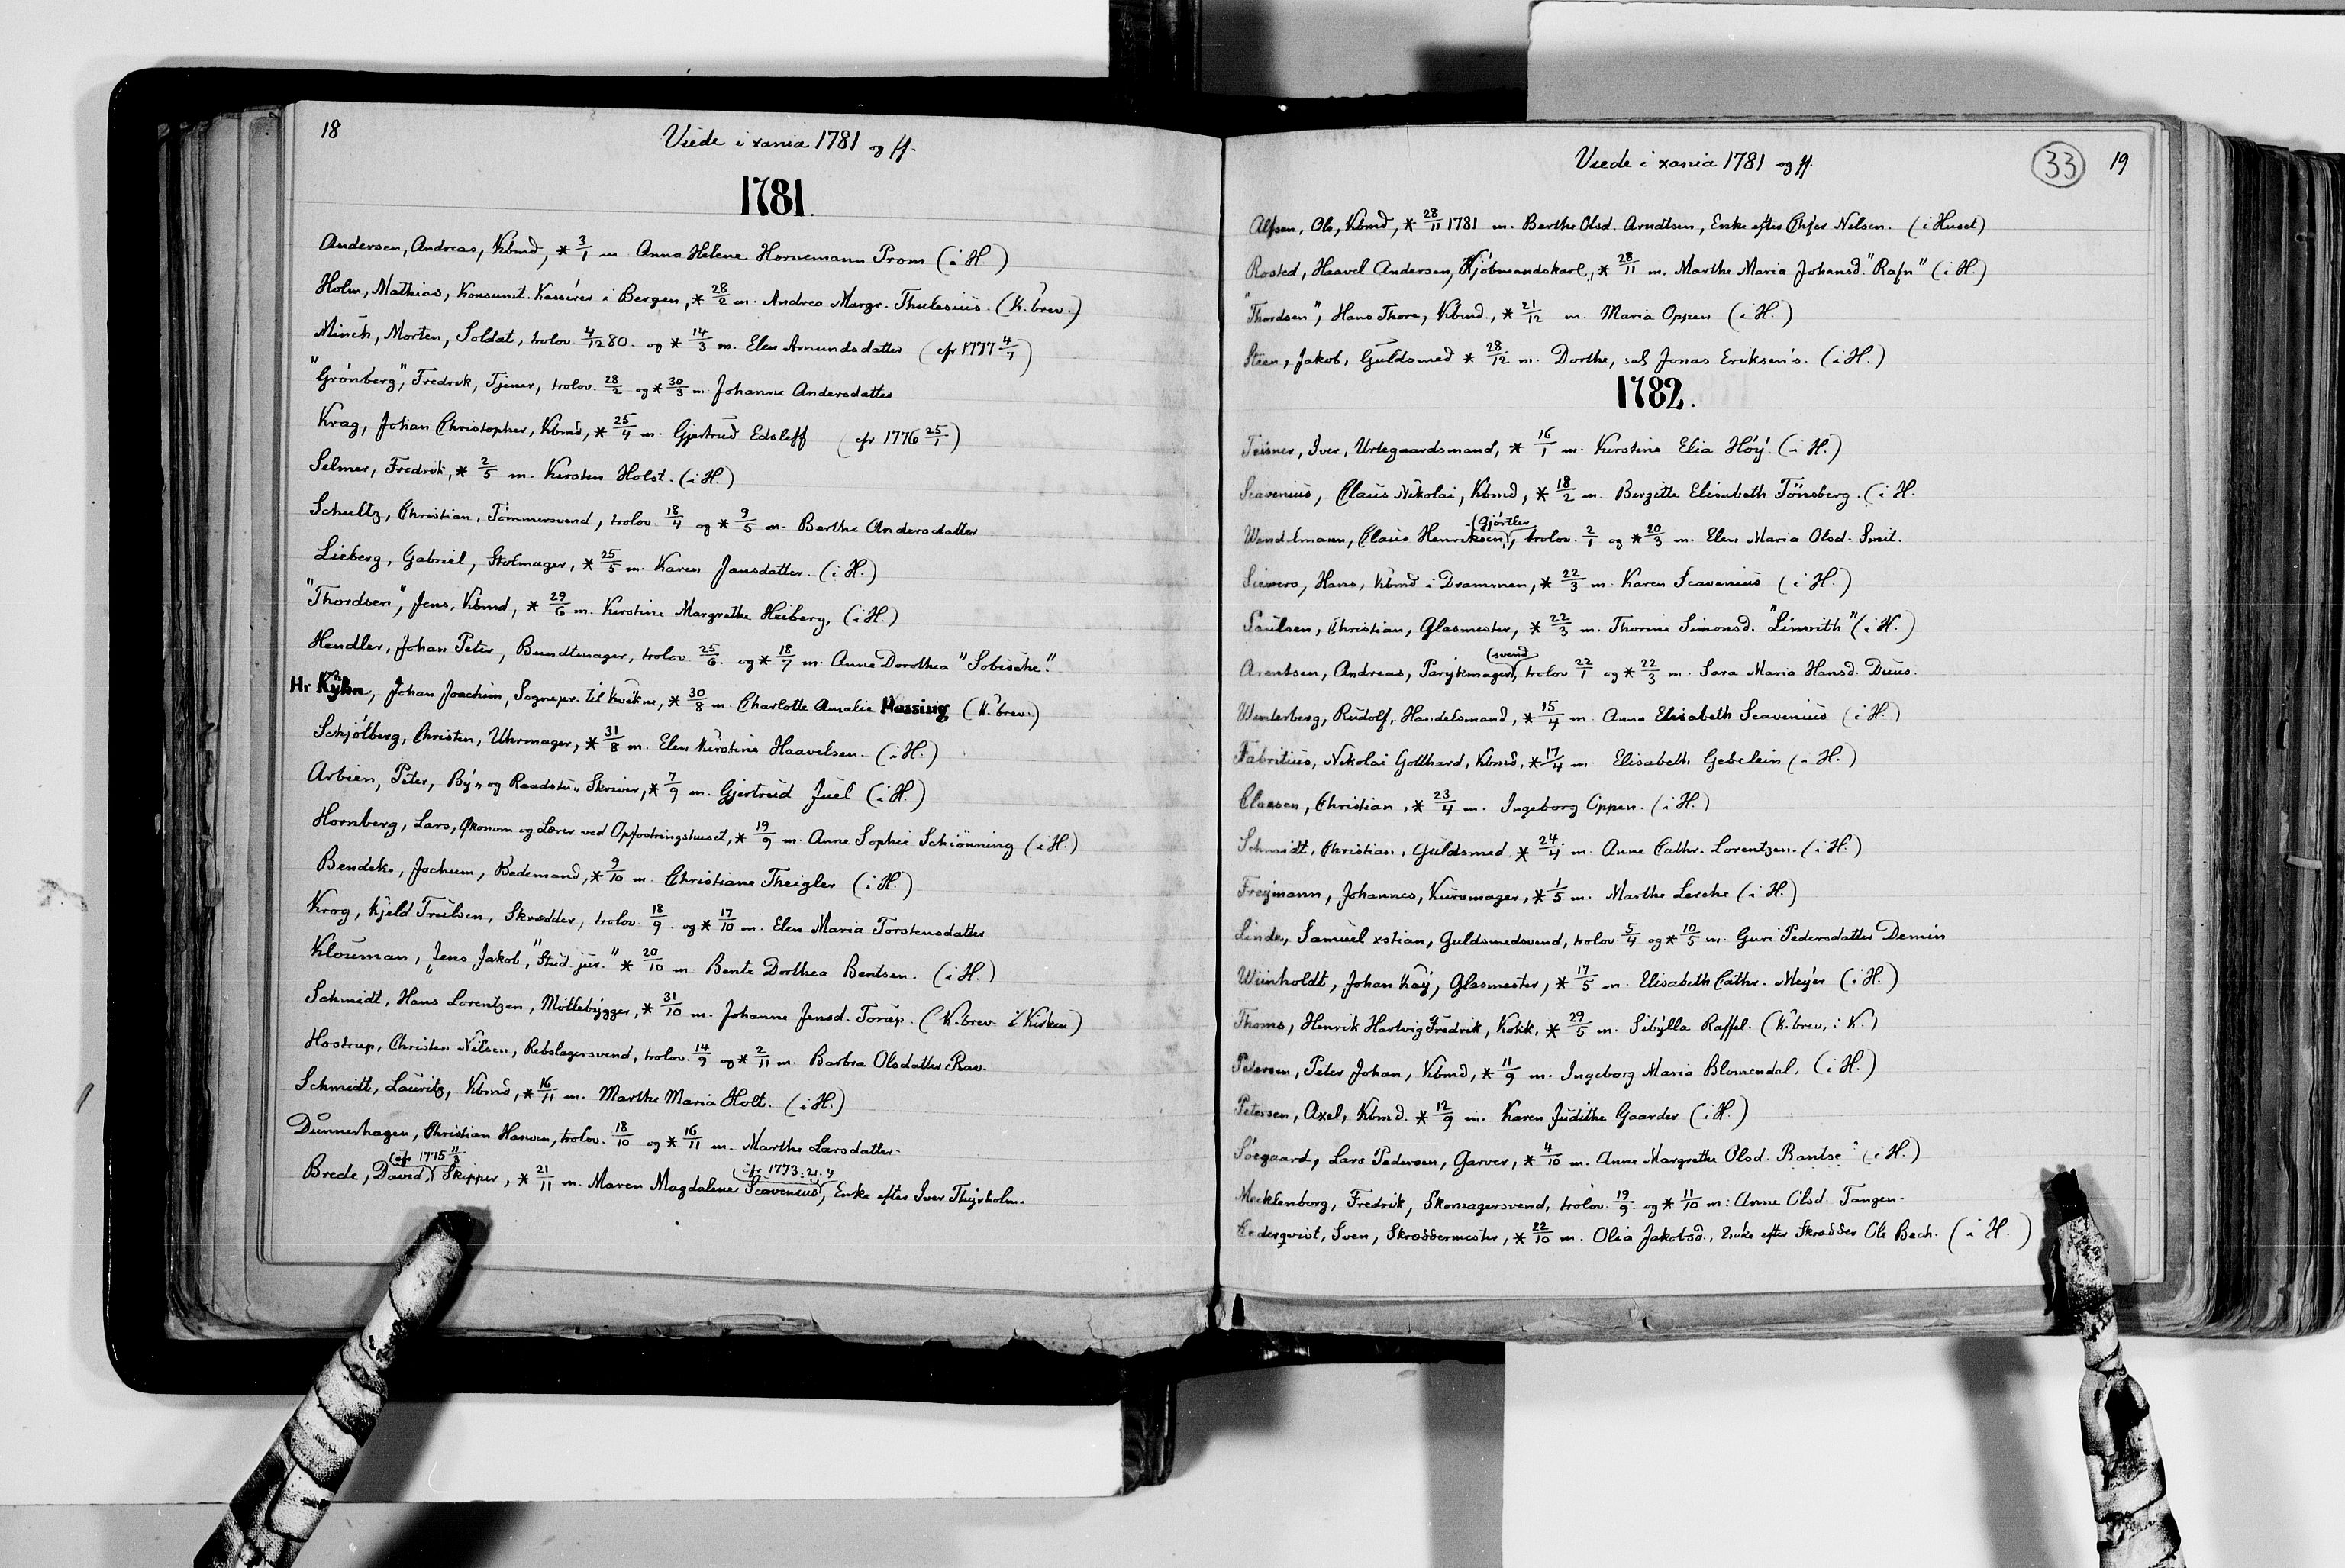 18
Viede i xania 1781 og ff.
1781.
Andersen, Andreas, Kbmd, * 3/1 m Anna Helene Hornemann Prom (i H.)
Holm, Mathias, Konsumt. Kassérer i Bergen, * 28/2 m. Andrea Margr. Thulesius. (K.brev.)
Minch, Morten, Soldat, trolov. 4/12 80. og * 14/3 m. Elen Amundsdatter (cfr 1777 4/7)
"Grönberg", Fredrik, Tjener, trolov. 28/2 og * 30/3 m. Johanne Andersdatter
Krag, Johan Christopher, Kbmd, * 25/4 m. Gjertrud Edsleff (cfr 1776 25/1)
Selmer, Fredrik, * 2/5 m. Kirsten Holst. (i H.)
Schultz, Christian, Tömmersvend, trolov. 18/4 og * 9/5 m. Berthe Andersdatter
Lieberg, Gabriel, Stolmager, * 25/5 m. Karen Jansdatter. (i H.)
"Thordsen", Jens, Kbmd, * 29/6 m. Kirstine Margrethe Heiberg, (i H.)
Hendler, Johan Peter, Bundtmager, trolov 25/6. og * 18/7 m. Anne Dorothea "Sobische".
Hr Kÿhn, Johan Joachim, Sognepr. til Kvikne, * 30/8 m. Charlotte Amalie Massing (K.brev.)
Schjölberg, Christen, Uhrmager, * 31/8 m. Elen Kirstine Haavelsen. (i H.)
Arbien, Peter, By,, og Raadstu,, Skriver, * 7/9 m. Gjertrud Juel (i H.)
Hornberg, Lars, Økonom og Lærer ved Opfostringshuset, * 19/9 m. Anne Sophie Schiönning (i H.)
Bendeke, Jochum, Bedemand, * 9/10 m. Christiane Theigler (i H.)
Krog, Kjeld Trulsen, Skrædder, trolov. 18/9. og * 17/10 m. Elen Maria Torstensdatter
Klouman, Jens Jakob, "Stud. jur." * 20/10 m. Bente Dorthea Bentsen. (i H.)
Schmidt, Hans Lorentzen, Möllebygger, * 31/10 m. Johanne Jensd. Torup. (K.brev. i Kirken)
Hostrup, Christen Nilsen, Rebslagersvend, trolov. 14/9 og * 2/11 m. Barbra Olsdatter Rav.
Schmidt, Lauritz, Kbmd, * 16/11 m. Marthe Maria Holt. (i H.)
Dunnerhagen, Christian Hansen, trolov. 18/10 og * 16/11 m. Marthe Larsdatter.
(cfr 1775 11/3 (cfr 1773.21.4
Brede, David, Skipper, * 21/11 m. Maren Magdalene Scavenius, Enke efter Iver Thyrholm.
Viede i xania 1781 og ff.
33 19
Alfsen, Ole, Kbmd, * 28/11 1781 m. Berthe Olsd. Arndtsen, Enke efter Chfer Nilsen. (i Huset)
Rosted, Haavel Andersen, Kjöbmandskarl, * 28/11 m. Marthe Maria Johansd. "Rafn" (i H.)
"Thordsen", Hans Thore, Kbmd., * 21/12 m. Maria Oppen (i H.)
Steen, Jakob, Guldsmed * 28/12 m. Dorthe, sal Jonas Eriksen's. (i H.)
1782.
Teisner, Iver, Urtegaardsmand, * 16/1 m. Kirstine Elia Höy. (i H.)
Scavenius, Claus Nikolai, Kbmd, * 18/2 m. Birgitte Elisabeth Tönsberg. (i H.
(Gjörtler
Wendelmann, Claus Henriksen, trolov. 2/1 og * 20/3 m. Elen Maria Olsd. Smit.
Siewers, Hans, Kbmd i Drammen, * 22/3 m. Karen Scavenius (i H.)
Paulsen, Christian, Glasmester, * 22/3 m. Thorine Simonsd. "Linvith" (i H.)
(svend
Arentsen, Andreas, Parykmager, trolov 22/1 og * 22/3 m. Sara Maria Hansd. Duus.
Winterberg, Rudolf, Handelsmand, * 15/4 m. Anna Elisabeth Scavenius (i H.)
Fabritius, Nikolai Gotthard, Kbmd, * 17/4 m. Elisabeth Gebelein (i H.)
Clausen, Christian, * 23/4 m. Ingeborg Oppen. (i H.)
Schmidt, Christian, Guldsmed * 24/4 m. Anne Cathr. Lorentzen. (i H.)
Freymann, Johannes, Kurvmager, * 1/5 m. Marthe Lerche (i H.)
Linde, Samuel xstian, Guldsmedsvend, trolov 5/4 og * 10/5 m. Guri Pedersdatter Demin
Wiinholdt, Johan Kay, Glasmester, * 17/5 m. Elisabeth Cathr. Meyer (i H.)
Thoms, Henrik Hartvig Fredrik, Kokk, * 29/5 m. Sibylla Raffel. (K.brev, i K.)
Petersen, Peter Johan, Kbmd, * 11/9 m. Ingeborg Maria Blomendal. (i H.)
Petersen, Axel, Kbmd. * 12/9 m. Karen Judithe Gaarder (i H.)
Söegaard, Lars Pedersen, Garver, * 4/10 m. Anne Margrethe Olsd. Bantse (i H.)
Mecklenborg, Fredrik, Skomagersvend, trolov 19/9. og * 11/10 m. Anne Olsd. Tangen.
Cederqvist, Sven, Skræddermester, * 22/10 m. Olia Jakobsd., Enke efter Skrædder Ole Bech. (i H.)